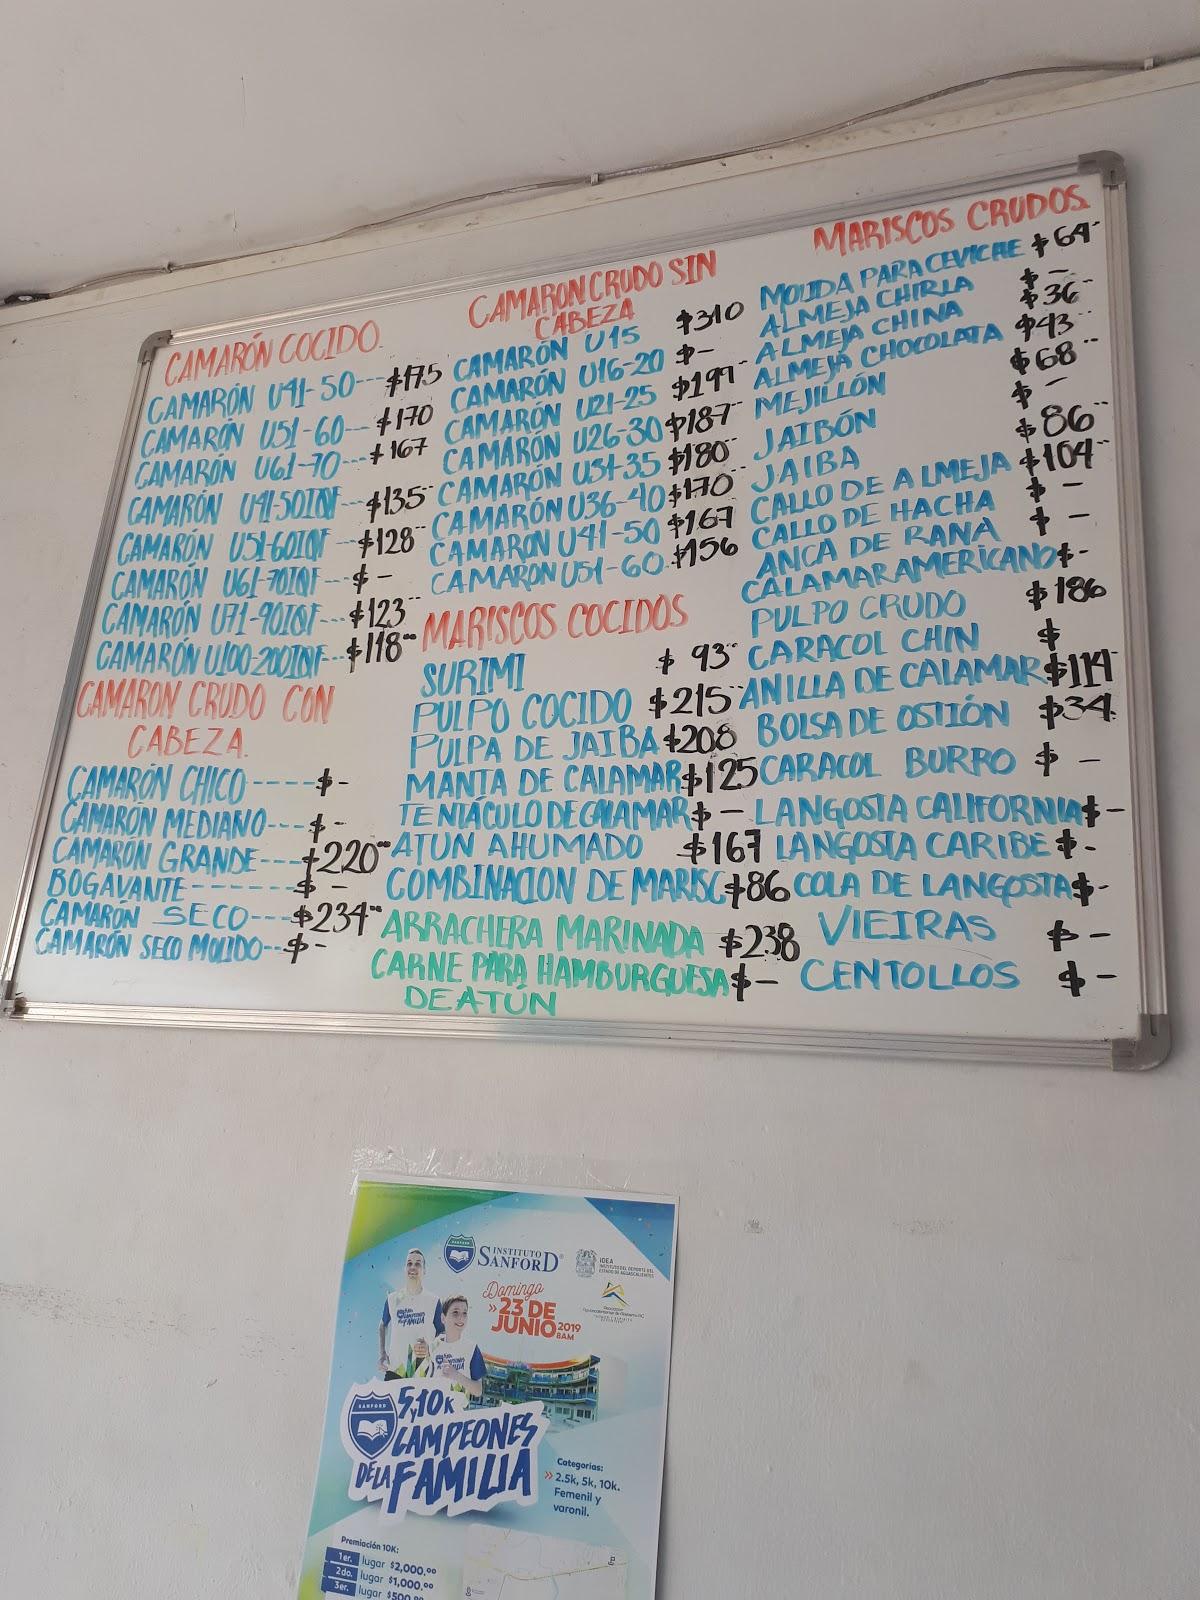 CAMARÓN COCIDO.
CAMARÓN U41-50---$175
CAMARÓN U51-60---$170
CAMARÓN U61-70---$167
CAMARÓN U41-50IQF---$135
CAMARÓN U51-60IQF---$128
CAMARÓN U61-70IQF---$-
CAMARÓN U71-90IQF---$123
CAMARÓN U100-200IQF---$118
CAMARON CRUDO CON
CABEZA.
CAMARÓN CHICO----$-
CAMARÓN MEDIANO---$-
CAMARÓN GRANDE---$220
BOGAVANTE-------$-
CAMARÓN SECO---$234
CAMARÓN SECO MOLIDO--$-
CAMARON CRUDO SIN
CABEZA
CAMARÓN U15 $310
CAMARÓN U16-20 $-
CAMARÓN U21-25 $199
CAMARÓN U26-30 $187
CAMARÓN U31-35 $180
CAMARÓN U36-40 $170
CAMARON U41-50 $167
CAMARON U51-60 $156
MARISCOS COCIDOS
SURIMI $93
PULPO COCIDO $215
PULPA DE JAIBA $208
MANTA DE CALAMAR $125
TENTÁCULO DE CALAMAR $-
ATUN AHUMADO $167
COMBINACION DE MARISC $86
ARRACHERA MARINADA $238
CARNE PARA HAMBURGUESA $-
DE ATÚN
MARISCOS CRUDOS.
MOLIDA PARA CEVICHE $64
ALMEJA CHIRLA $-
ALMEJA CHINA $36
ALMEJA CHOCOLATA $43
MEJILLÓN $68
JAIBÓN $-
JAIBA $86
CALLO DE ALMEJA $104
CALLO DE HACHA $-
ANCA DE RANA $-
CALAMAR AMERICANO $-
PULPO CRUDO $186
CARACOL CHIN $
ANILLA DE CALAMAR $114
BOLSA DE OSTIÓN $34
CARACOL BURRO $-
LANGOSTA CALIFORNIA $-
LANGOSTA CARIBE $-
COLA DE LANGOSTA $-
VIEIRAS $-
CENTOLLOS $-
INSTITUTO
SANFORD®
IDEA
INSTITUTO DEL DEPORTE DEL
ESTADO DE AGUASCALIENTES
Domingo
» 23 DE
JUNIO 2019
8AM
SANFORD
5 y 10K
CAMPEONES
DE LA FAMILIA
Categorías:
» 2.5k, 5k, 10k.
Femenil y
varonil.
Premiación 10K:
1er. lugar $2,000.00
2do. lugar $1,000.00
3er. lugar $500.00